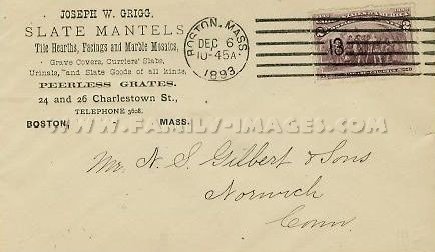 JOSEPH W. GRIGG,
SLATE MANTELS
Tile Hearths, Facings and Marble Mosaics,
Grave Covers, Curriers' Slabs,
Urinals, and Slate Goods of all kinds,
PEERLESS GRATES.
24 and 26 Charlestown St.,
TELEPHONE 3608.
BOSTON, - MASS.
BOSTON, MASS.
DEC 6
10-45A
1893
WWW.FAMILY-IMAGES.COM
Mr. N. S. Gilbert & Sons
Norwich
Conn.